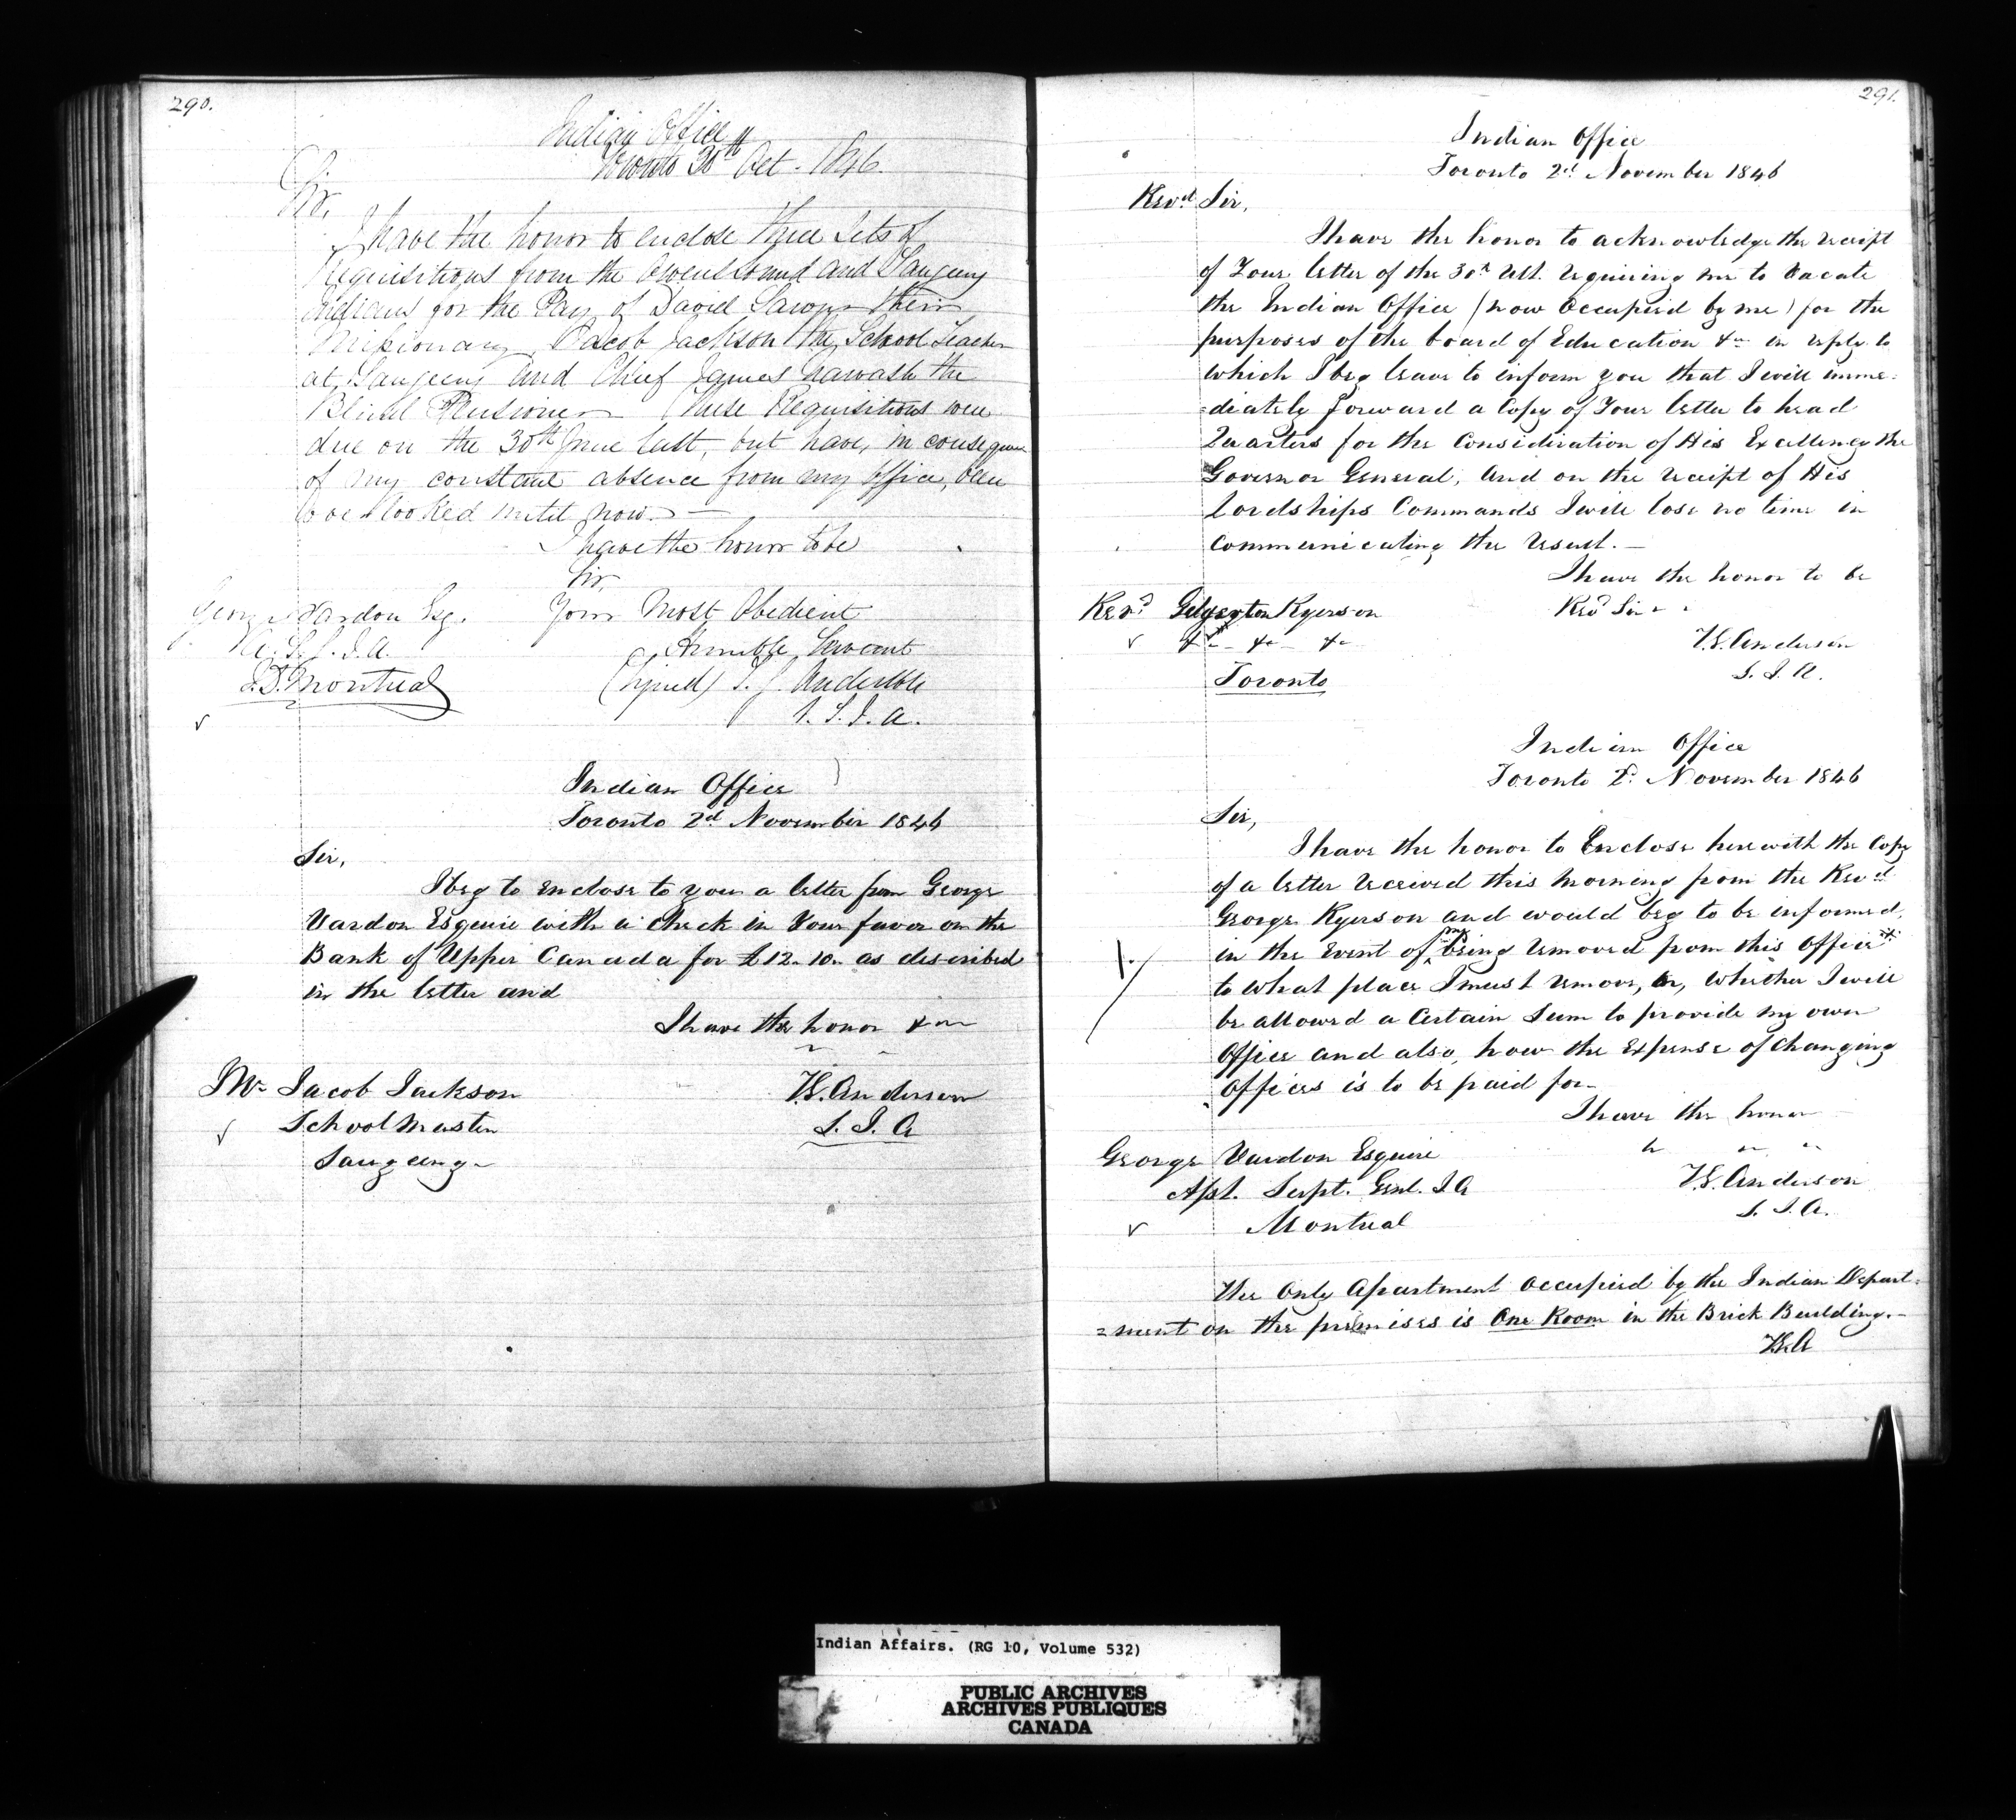 290.
Indian Office
Toronto 30th Oct. 1846.
Sir,
I have the honor to enclose three Sets of
Requisitions from the Owens Sound and Saugeeng
Indians for the Pay of David Sawyer their
Missionary, Jacob Jackson the School Teacher
at Saugeeng and Chief James Nawash the
Blind Pensioner These Requisitions were
due on the 30th June last, but have, in consequence
of my constant absence from my Office, been
overlooked until now. —
I have the honor to be
Sir,
Your Most Obedient
Humble Servant
(Signed) T. G. Anderson
S. I. A.
George Vardon Esq.
A. S. G. I. A.
Montreal
Indian Office
Toronto 2d November 1846
Sir,
I beg to enclose to you a letter from George
Vardon Esquire with a Check in Your favor on the
Bank of Upper Canada for £12. 10. as described
in the letter and
I have the honor &c
Mr Jacob Jackson
School Master
Saugeeng
T.G. Anderson
S. I. A
291.
Indian Office
Toronto 2d November 1846
Revd Sir,
I have the honor to acknowledge the receipt
of Your letter of the 30th Ult. requiring me to vacate
the Indian Office (now Occupied by me) for the
purposes of the board of Education &c in reply to
which I beg leave to inform you that I will imme=
=diately forward a Copy of Your letter to head
Quarters for the Consideration of His Excellency the
Governor General, and on the receipt of His
lordships Commands I will lose no time in
Communicating the result. —
I have the honor to be
Revd Sir
Revd Edgerton Ryerson
&c &c &c
Toronto
T.G. Anderson
S. I. A.
Indian Office
Toronto 2d November 1846
Sir,
I have the honor to Enclose herewith the Copy
of a letter received this morning from the Revd
George Ryerson and would beg to be informed,
in the event of my being removed from this Office *
to what place I must remove, or, whether I will
be allowed a Certain Sum to provide my own
Office and also, how the Expense of Changing
Offices is to be paid for—
I have the honor
George Vardon Esquire
Asst. Supt. Genl. I A
Montreal
T.G. Anderson
S. I. A.
The Only Apartment occupied by the Indian Depart=
=ment on the premises is One Room in the Brick Building.—
T.G.A
Indian Affairs. (RG 10, Volume 532)
PUBLIC ARCHIVES
ARCHIVES PUBLIQUES
CANADA